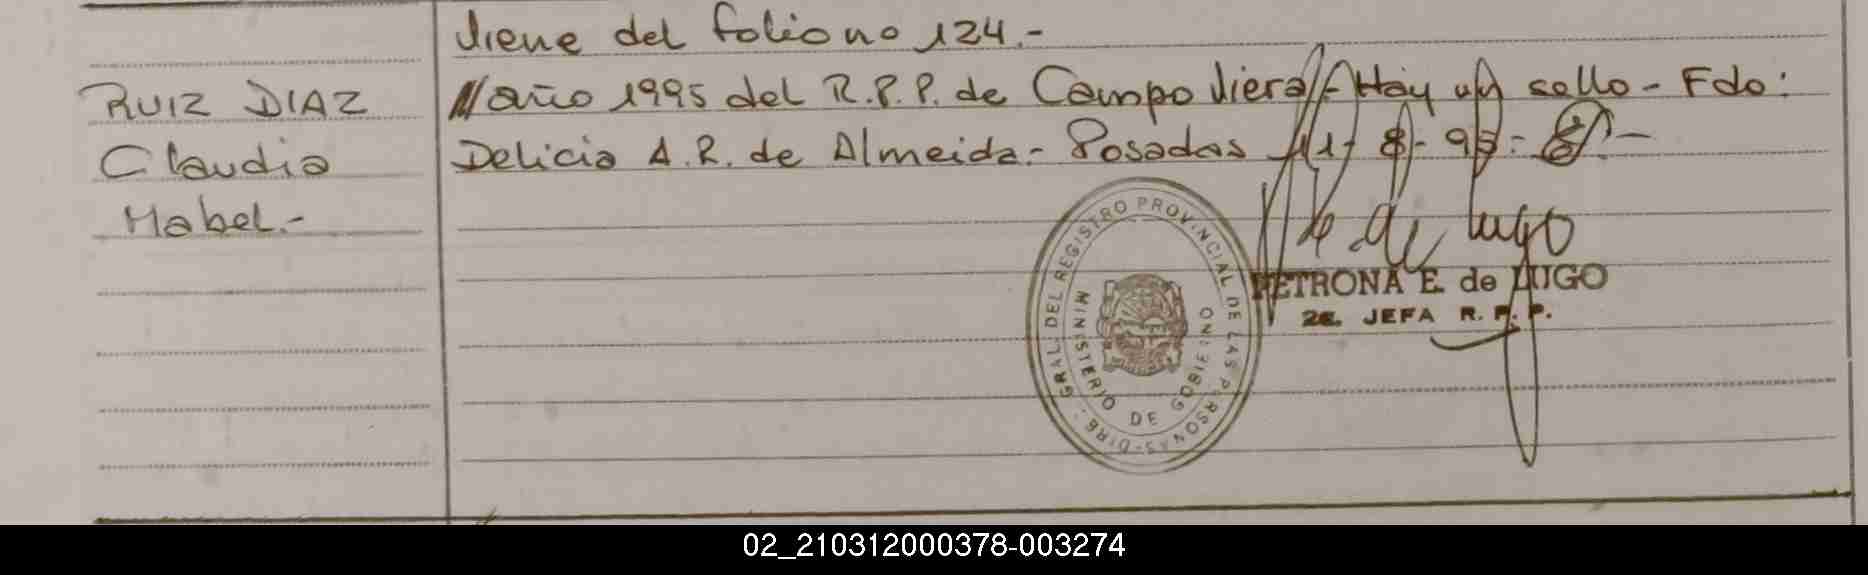 Viene del folio no 124.-
RUIZ DIAZ
Claudia
Mabel.-
// año 1995 del R.P.P. de Campo Viera/- Hay un sello - Fdo:
Delicia A.R. de Almeida.- Posadas
de Lugo
PETRONA E. de LUGO
2a. JEFA R. P. P.
DIRE. GRAL. DEL REGISTRO PROVINCIAL DE LAS PERSONAS-
MINISTERIO DE GOBIERNO
02_210312000378-003274